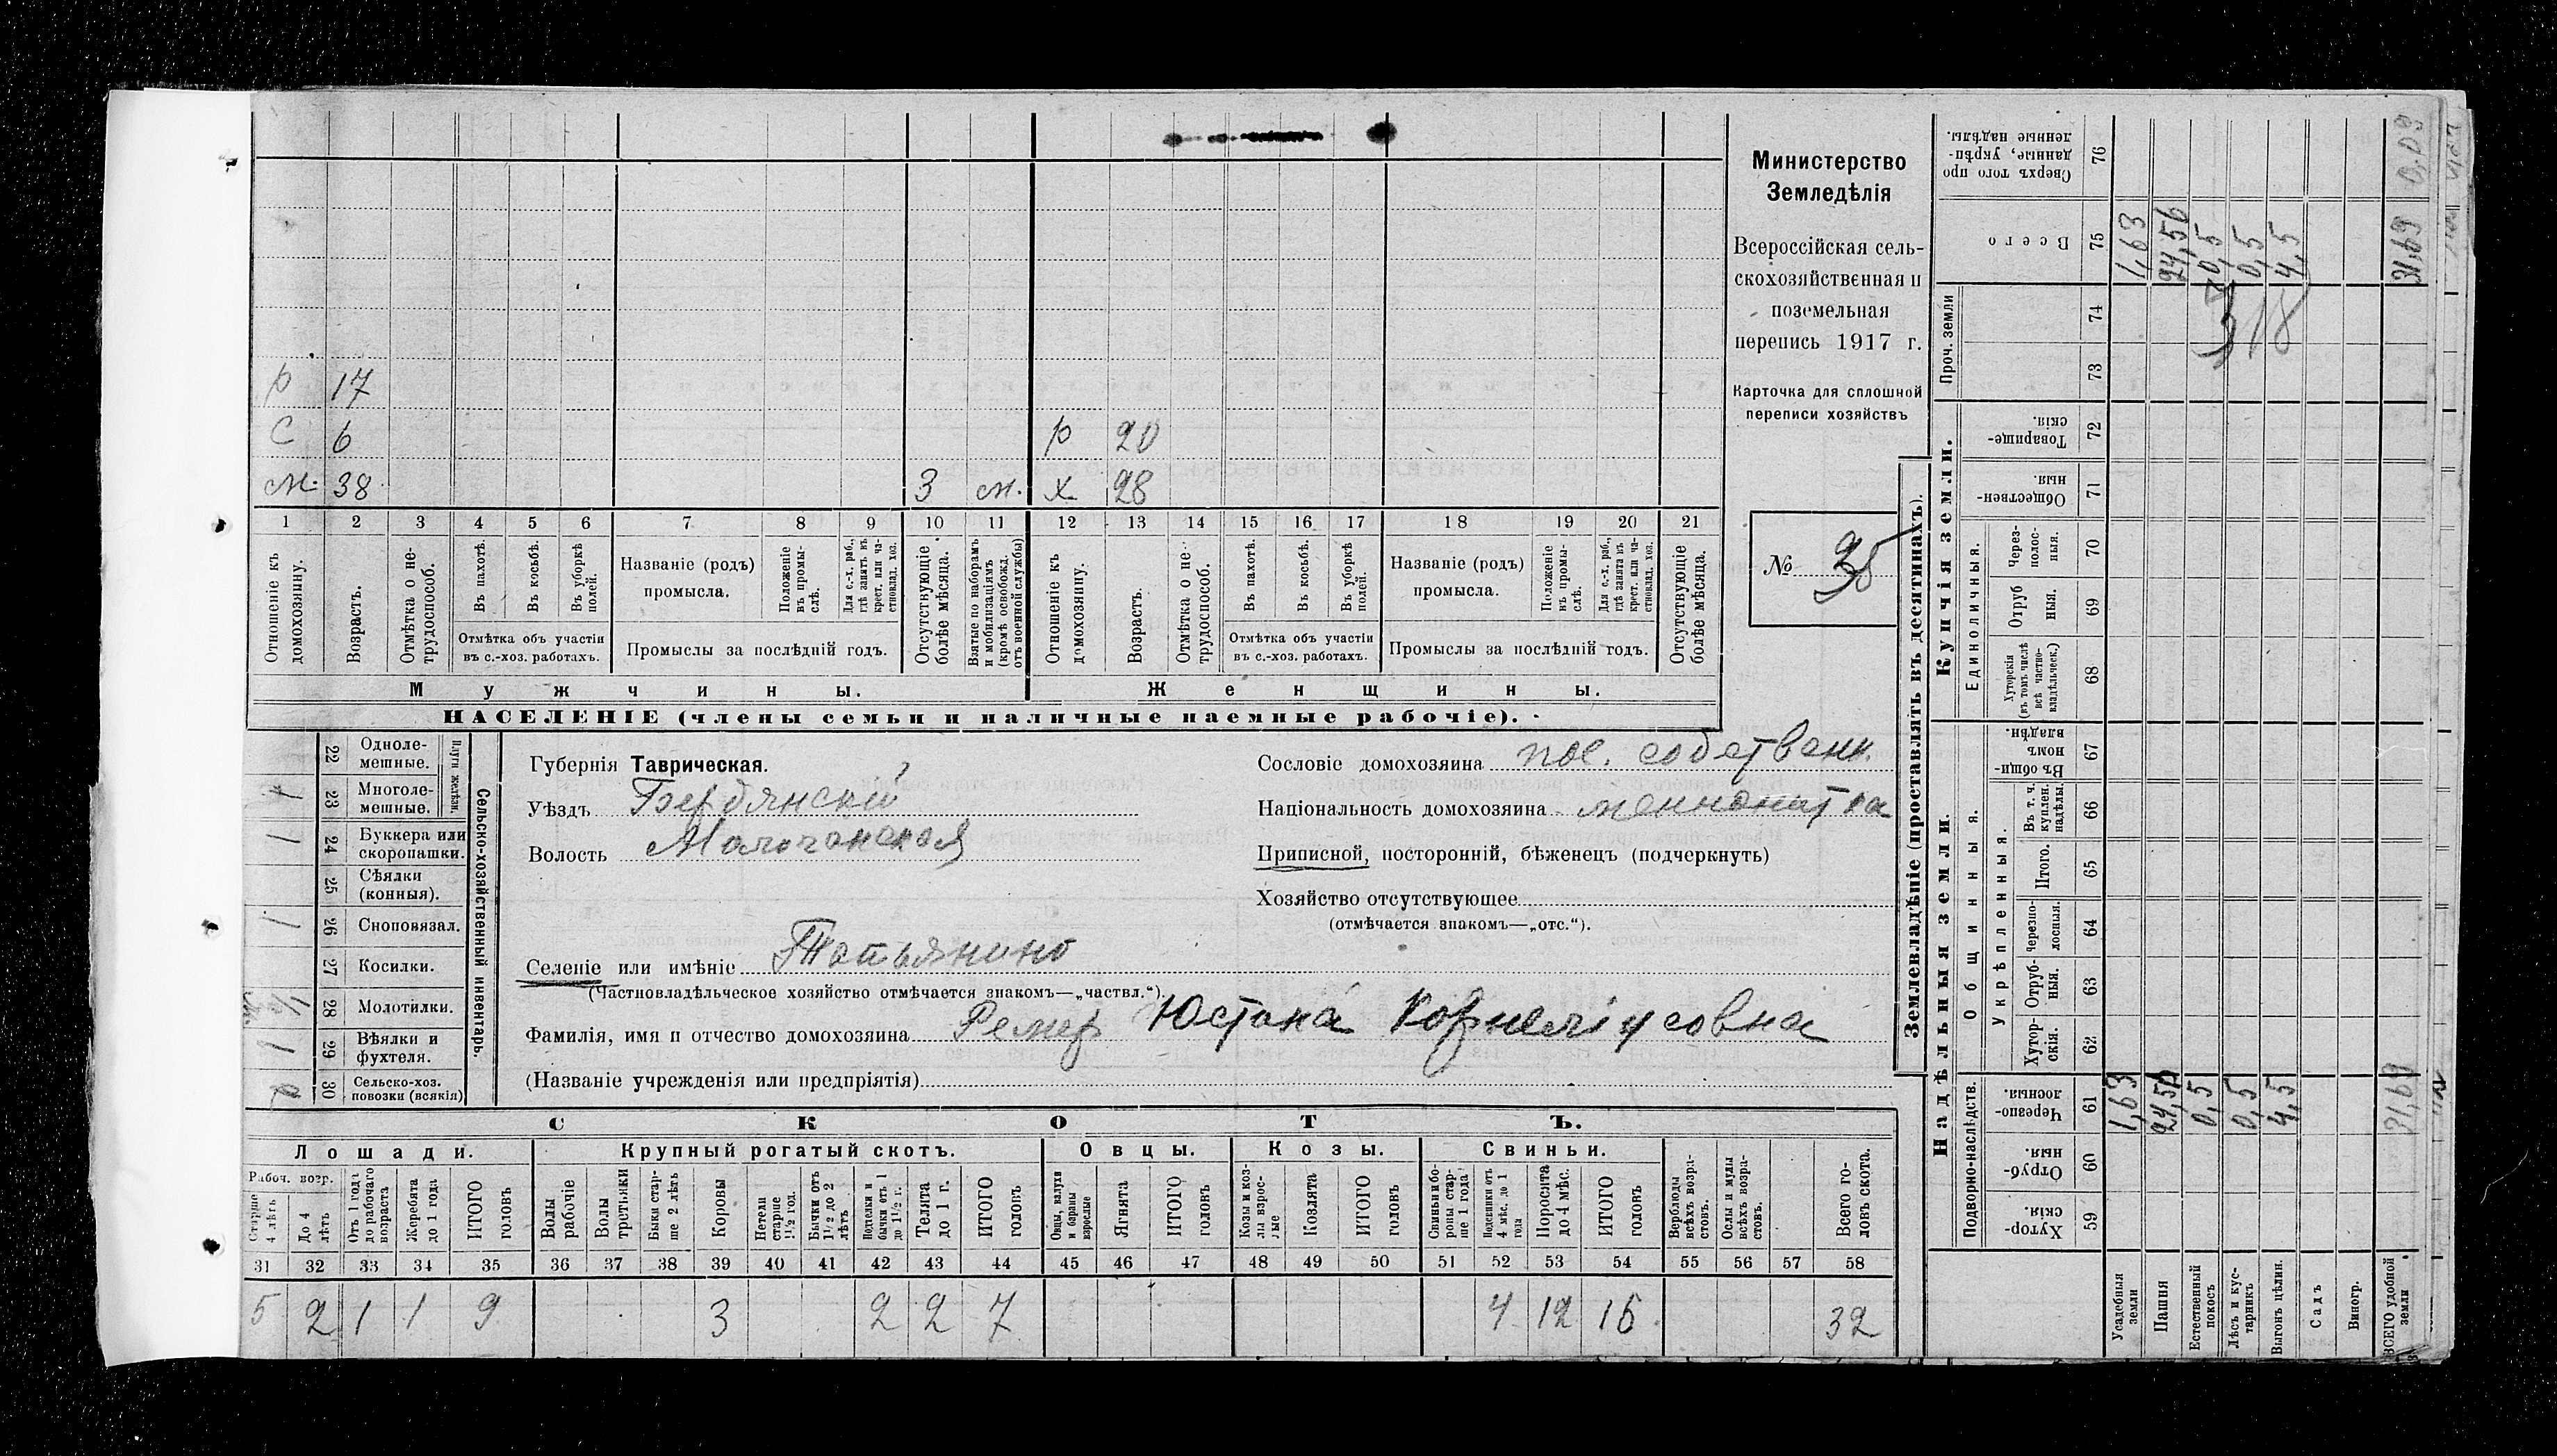 р 17
С 6 р 20
м. 38 3 м. х 28
1 2 3 4 5 6 7 8 9 10 11 12 13 14 15 16 17 18 19 20 21
Отношеніе къ домохозяину.
Возрастъ.
Отмѣтка о не-трудоспособ.
Въ пахотѣ.
Въ косьбѣ.
Въ уборкѣ полей.
Отмѣтка объ участіи
въ с.-хоз. работахъ.
Названіе (родъ)
промысла.
Положеніе въ промы-слѣ.
Для с.-х. раб., гдѣ занятъ въ крест. или ча-стновлад. хоз.
Промыслы за послѣдній годъ.
Отсутствующіе болѣе мѣсяца.
Взятые по наборамъ и мобилизаціямъ (кромѣ освобожд. отъ военной службы)
Отношеніе къ домохозяину.
Возрастъ.
Отмѣтка о не-трудоспособ.
Въ пахотѣ.
Въ косьбѣ.
Въ уборкѣ полей.
Отмѣтка объ участіи
въ с.-хоз. работахъ.
Названіе (родъ)
промысла.
Положеніе въ промы-слѣ.
Для с.-х. раб., гдѣ занята въ крест. или ча-стновлад. хоз.
Промыслы за послѣдній годъ.
Отсутствующіе болѣе мѣсяца.
Мужчины. Женщины.
НАСЕЛЕНІЕ (члены семьи и наличные наемные рабочіе).
Министерство
Земледѣлія
Всероссійская сель-
скохозяйственная и
поземельная
перепись 1917 г.
Карточка для сплошной
переписи хозяйствъ
№
Сельско-хозяйственный инвентарь.
Плуги желѣзн.
22 Одноле-
мешные.
1 23 Многоле-
мешные.
1 24 Буккера или
скоропашки.
25 Сѣялки
(конныя).
1 26 Сноповязал.
27 Косилки.
28 Молотилки.
1 29 Вѣялки и
фухтеля.
30 Сельско-хоз.
повозки (всякія)
Губернія Таврическая.
Уѣздъ Бердянскій
Волость Молочанская
Селеніе или имѣніе Татьянино
(Частновладѣльческое хозяйство отмѣчается знакомъ—„частвл.“).
Фамилія, имя и отчество домохозяина Ремер Юстина Корнеліусовна
(Названіе учрежденія или предпріятія)
Сословіе домохозяина пос. собственн.
Національность домохозяина меннонитка
Приписной, посторонній, бѣженецъ (подчеркнуть)
Хозяйство отсутствующее
(отмѣчается знакомъ—„отс.“).
СКОТЪ.
Лошади. Крупный рогатый скотъ. Овцы. Козы. Свиньи.
Рабоч. возр.
Старше 4 лѣтъ
До 4 лѣтъ
Отъ 1 года до рабочаго возраста
Жеребята до 1 года
ИТОГО головъ
Волы рабочіе
Волы третьяки
Быки стар-ше 2 лѣтъ
Коровы
Нетели старше 1½ год.
Бычки отъ 1½ до 2 лѣтъ
Подтелки и бычки отъ 1 до 1½ г.
Телята до 1 г.
ИТОГО головъ
Овцы, валухи и бараны взрослые
Ягнята
ИТОГО головъ
Козы и коз-лы взрос-лые
Козлята
ИТОГО головъ
Свиньи и бо-ровы стар-ше 1 года
Подсвинки отъ 4 мѣс. до 1 года
Поросята до 4 мѣс.
ИТОГО головъ
Верблюды всѣхъ возра-стовъ.
Ослы и мулы всѣхъ возра-стовъ.
Всего го-ловъ скота.
31 32 33 34 35 36 37 38 39 40 41 42 43 44 45 46 47 48 49 50 51 52 53 54 55 56 57 58
5 2 1 1 9 3 2 2 7 4 12 16 32
Землевладѣніе (проставлять въ десятинахъ).
Купчія земли.
Надѣльныя земли.
Сверхъ того про-данные, укрѣп-ленные надѣлы. 76
Всего 75 1,63 24,56 0,5 0,5 4,5 31,69
Проч. земли 74 73
318
Товарище-скія. 72
Обществен-ныя. 71
Единоличныя.
Через-полос-ныя. 70
Отруб ныя. 69
Хуторскія (въ томъ числѣ всѣ частно-владѣльческ.) 68
Общинныя.
Въ общи-номъ владѣн. 67
Укрѣпленныя.
Въ т. ч. куплен. надѣлы. 66
Итого. 65
Черезпо-лосныя. 64
Отруб-ныя. 63
Хутор-скія. 62
Подворно-наслѣдств.
Черезпо-лосныя. 61 1,63 24,56 0,5 0,5 4,5 31,69
Отруб-ныя. 60
Хутор-скія. 59
Усадебныя земли
Пашня
Естественный покосъ
Лѣсъ и кус-тарникъ
Выгонъ цѣлин.
Садъ
Виногр.
ВСЕГО удобной земли